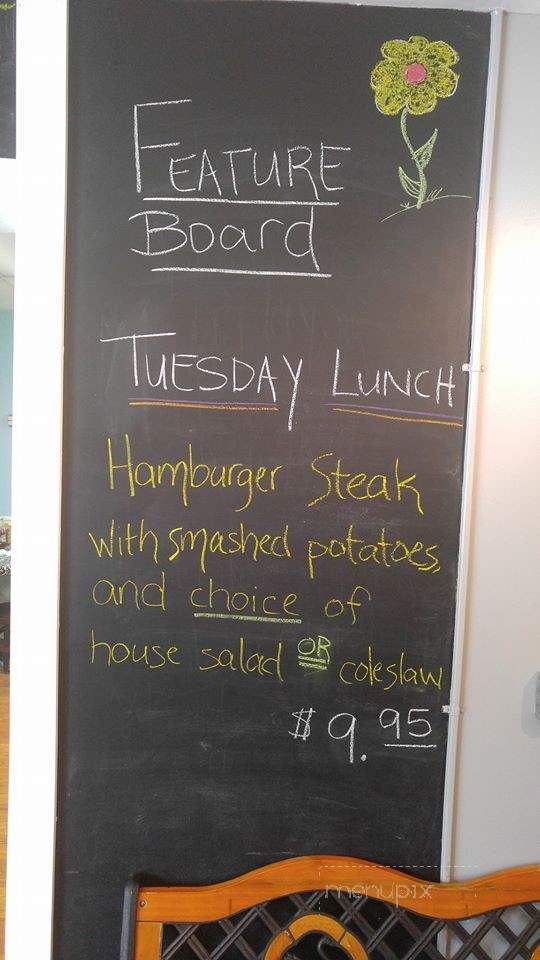 FEATURE
Board
TUESDAY LUNCH
Hamburger Steak
with smashed potatoes,
and choice of
house salad OR coleslaw
$9.95
menupix